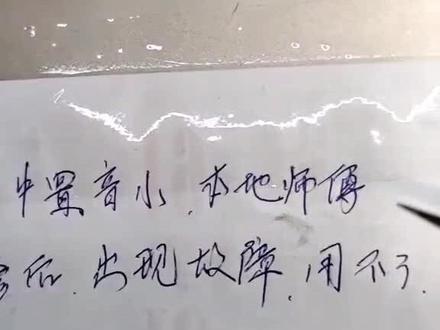 中置音小.本地师傅
后.出现故障.用不了.